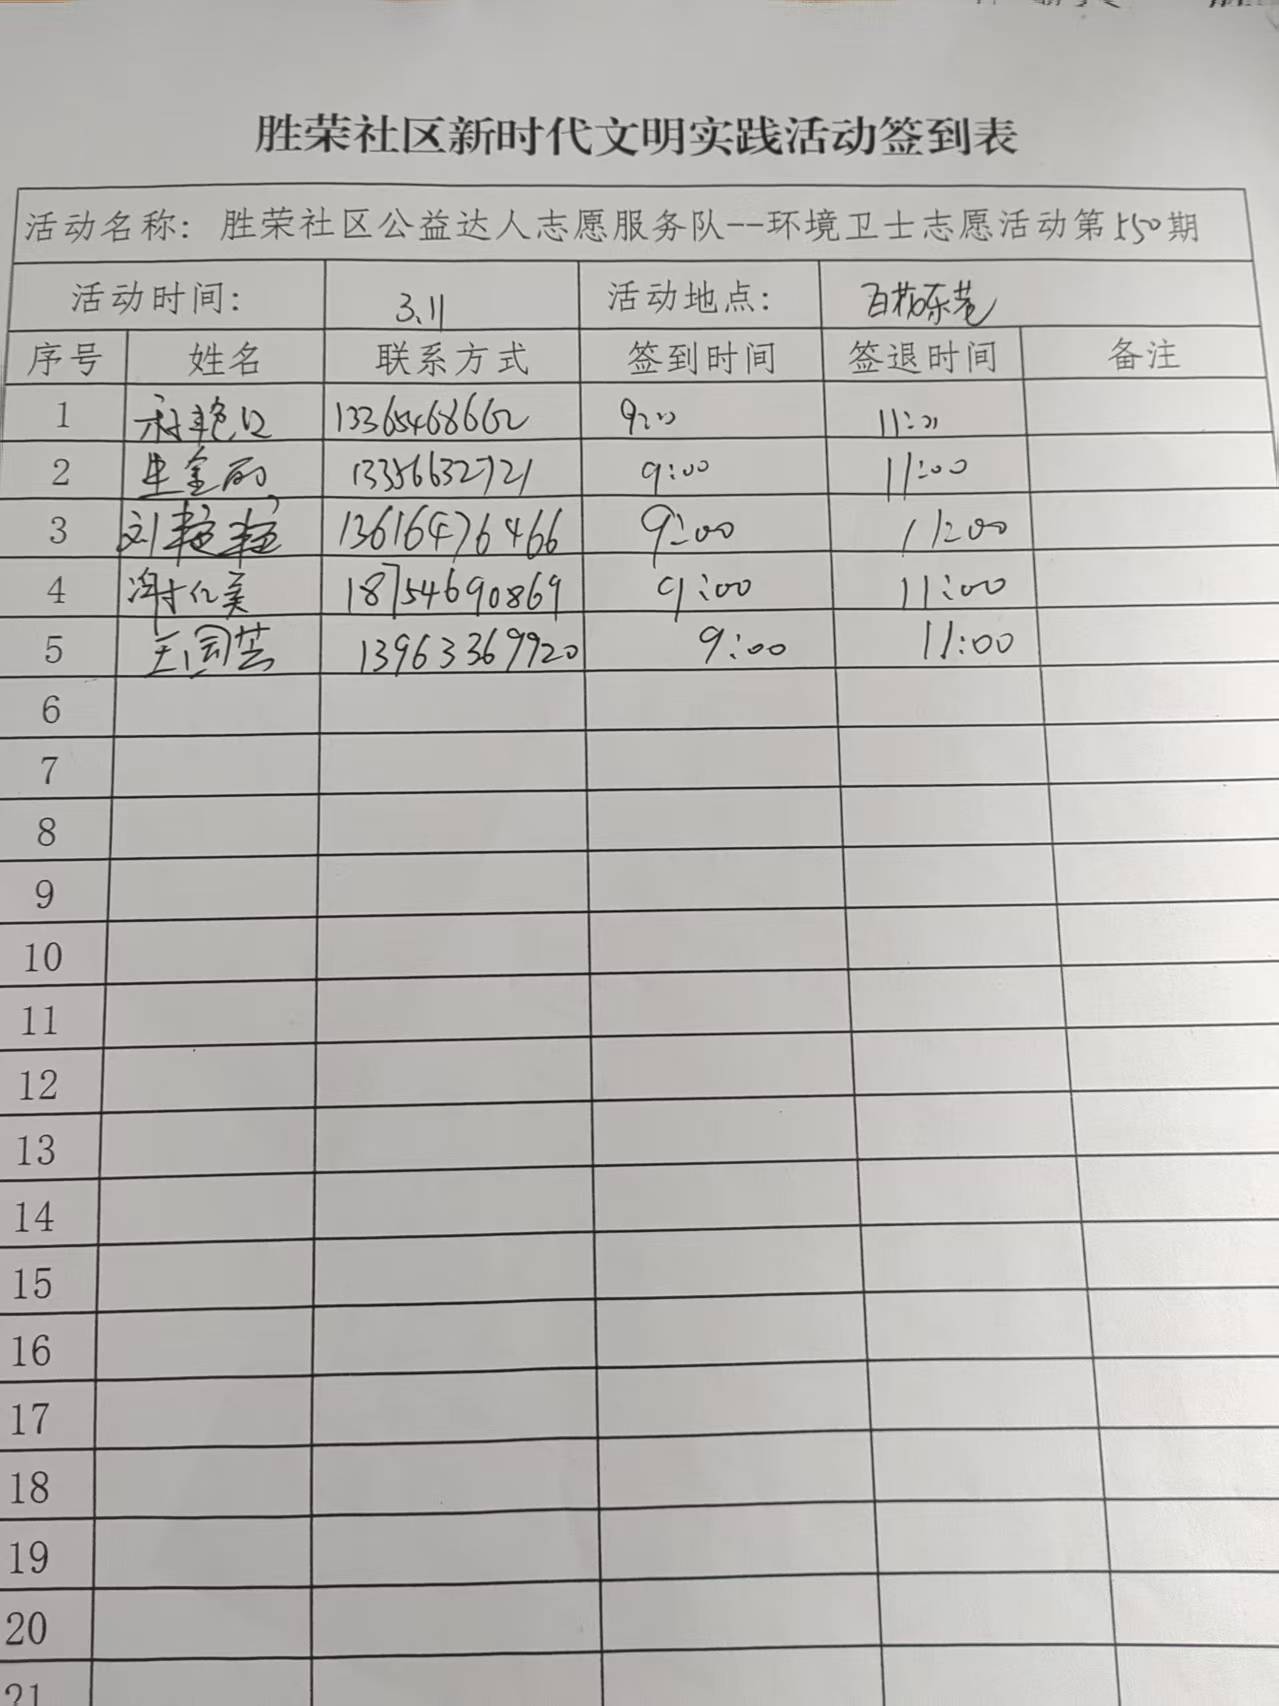 胜荣社区新时代文明实践活动签到表
活动名称：胜荣社区公益达人志愿服务队--环境卫士志愿活动第150期
活动时间： 3.11 活动地点： 百花东苑
序号 姓名 联系方式 签到时间 签退时间 备注
1 13365468662 9:00 11:00
2 牛金丽 13356632721 9:00 11:00
3 刘艳艳 13616476466 9:00 11:00
4 谢仁美 18754690869 9:00 11:00
5 王国芸 13963369920 9:00 11:00
6
7
8
9
10
11
12
13
14
15
16
17
18
19
20
21